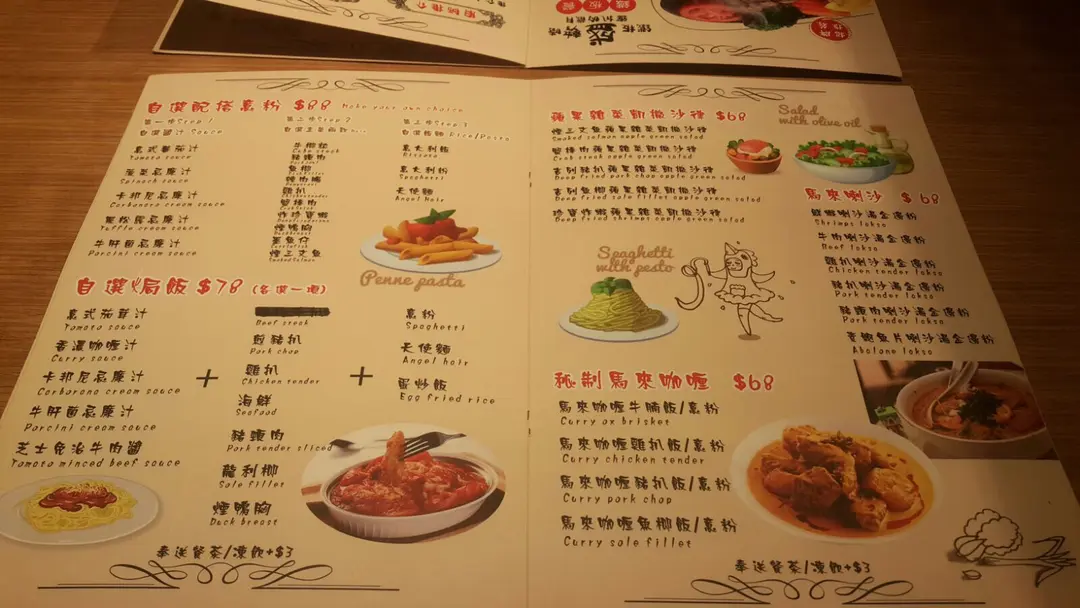 自選配搭意粉 $88 Make your own choice
第一步Step 1
自選醬汁 Sauce
意式蕃茄汁
Tomato sauce
菠菜忌廉汁
Spinach sauce
卡邦尼忌廉汁
Carbonara cream sauce
黑松露忌廉汁
Truffle cream sauce
牛肝菌忌廉汁
Porcini cream sauce
第二步Step 2
牛柳粒
Cube steak
豬頸肉
魚柳
雞扒
蟹棒肉
炸珍寶蝦
煙鴨胸
Duck breast
墨魚仔
煙三文魚
Smoked Salmon
第三步Step 3
自選飯麵 Rice/Pasta
意大利飯
Risotto
意大利粉
Spaghetti
天使麵
Angel Hair
Penne pasta
自選焗飯 $78 (各選一項)
意式茄茸汁
Tomato sauce
香濃咖喱汁
Curry sauce
卡邦尼忌廉汁
Carbonara cream sauce
牛肝菌忌廉汁
Porcini cream sauce
芝士免治牛肉醬
Tomato minced beef sauce
+
Beef steak
煎豬扒
Pork chop
雞扒
Chicken tender
海鮮
Seafood
豬頸肉
Pork tender sliced
龍利柳
Sole fillet
煙鴨胸
Duck breast
+
意粉
Spaghetti
天使麵
Angel hair
蛋炒飯
Egg fried rice
奉送餐茶/凍飲+$3
蘋果雜菜凱撒沙律 $68
煙三文魚蘋果雜菜凱撒沙律
Smoked salmon apple green salad
蟹棒肉蘋果雜菜凱撒沙律
Crab steak apple green salad
吉列豬扒蘋果雜菜凱撒沙律
Deep fried pork chop apple green salad
吉列魚柳蘋果雜菜凱撒沙律
Deep fried sole fillet apple green salad
珍寶炸蝦蘋果雜菜凱撒沙律
Deep fried shrimps apple green salad
Salad
with olive oil
馬來喇沙 $68
鮮蝦喇沙湯金邊粉
Shrimps laksa
牛肉喇沙湯金邊粉
Beef laksa
雞扒喇沙湯金邊粉
Chicken tender laksa
豬扒喇沙湯金邊粉
Pork tender laksa
豬頸肉喇沙湯金邊粉
Pork tender laksa
素鮑魚片喇沙湯金邊粉
Abalone laksa
Spaghetti
with pesto
秘制馬來咖喱 $68
馬來咖喱牛腩飯/意粉
Curry ox brisket
馬來咖喱雞扒飯/意粉
Curry chicken tender
馬來咖喱豬扒飯/意粉
Curry pork chop
馬來咖喱魚柳飯/意粉
Curry sole fillet
奉送餐茶/凍飲+$3